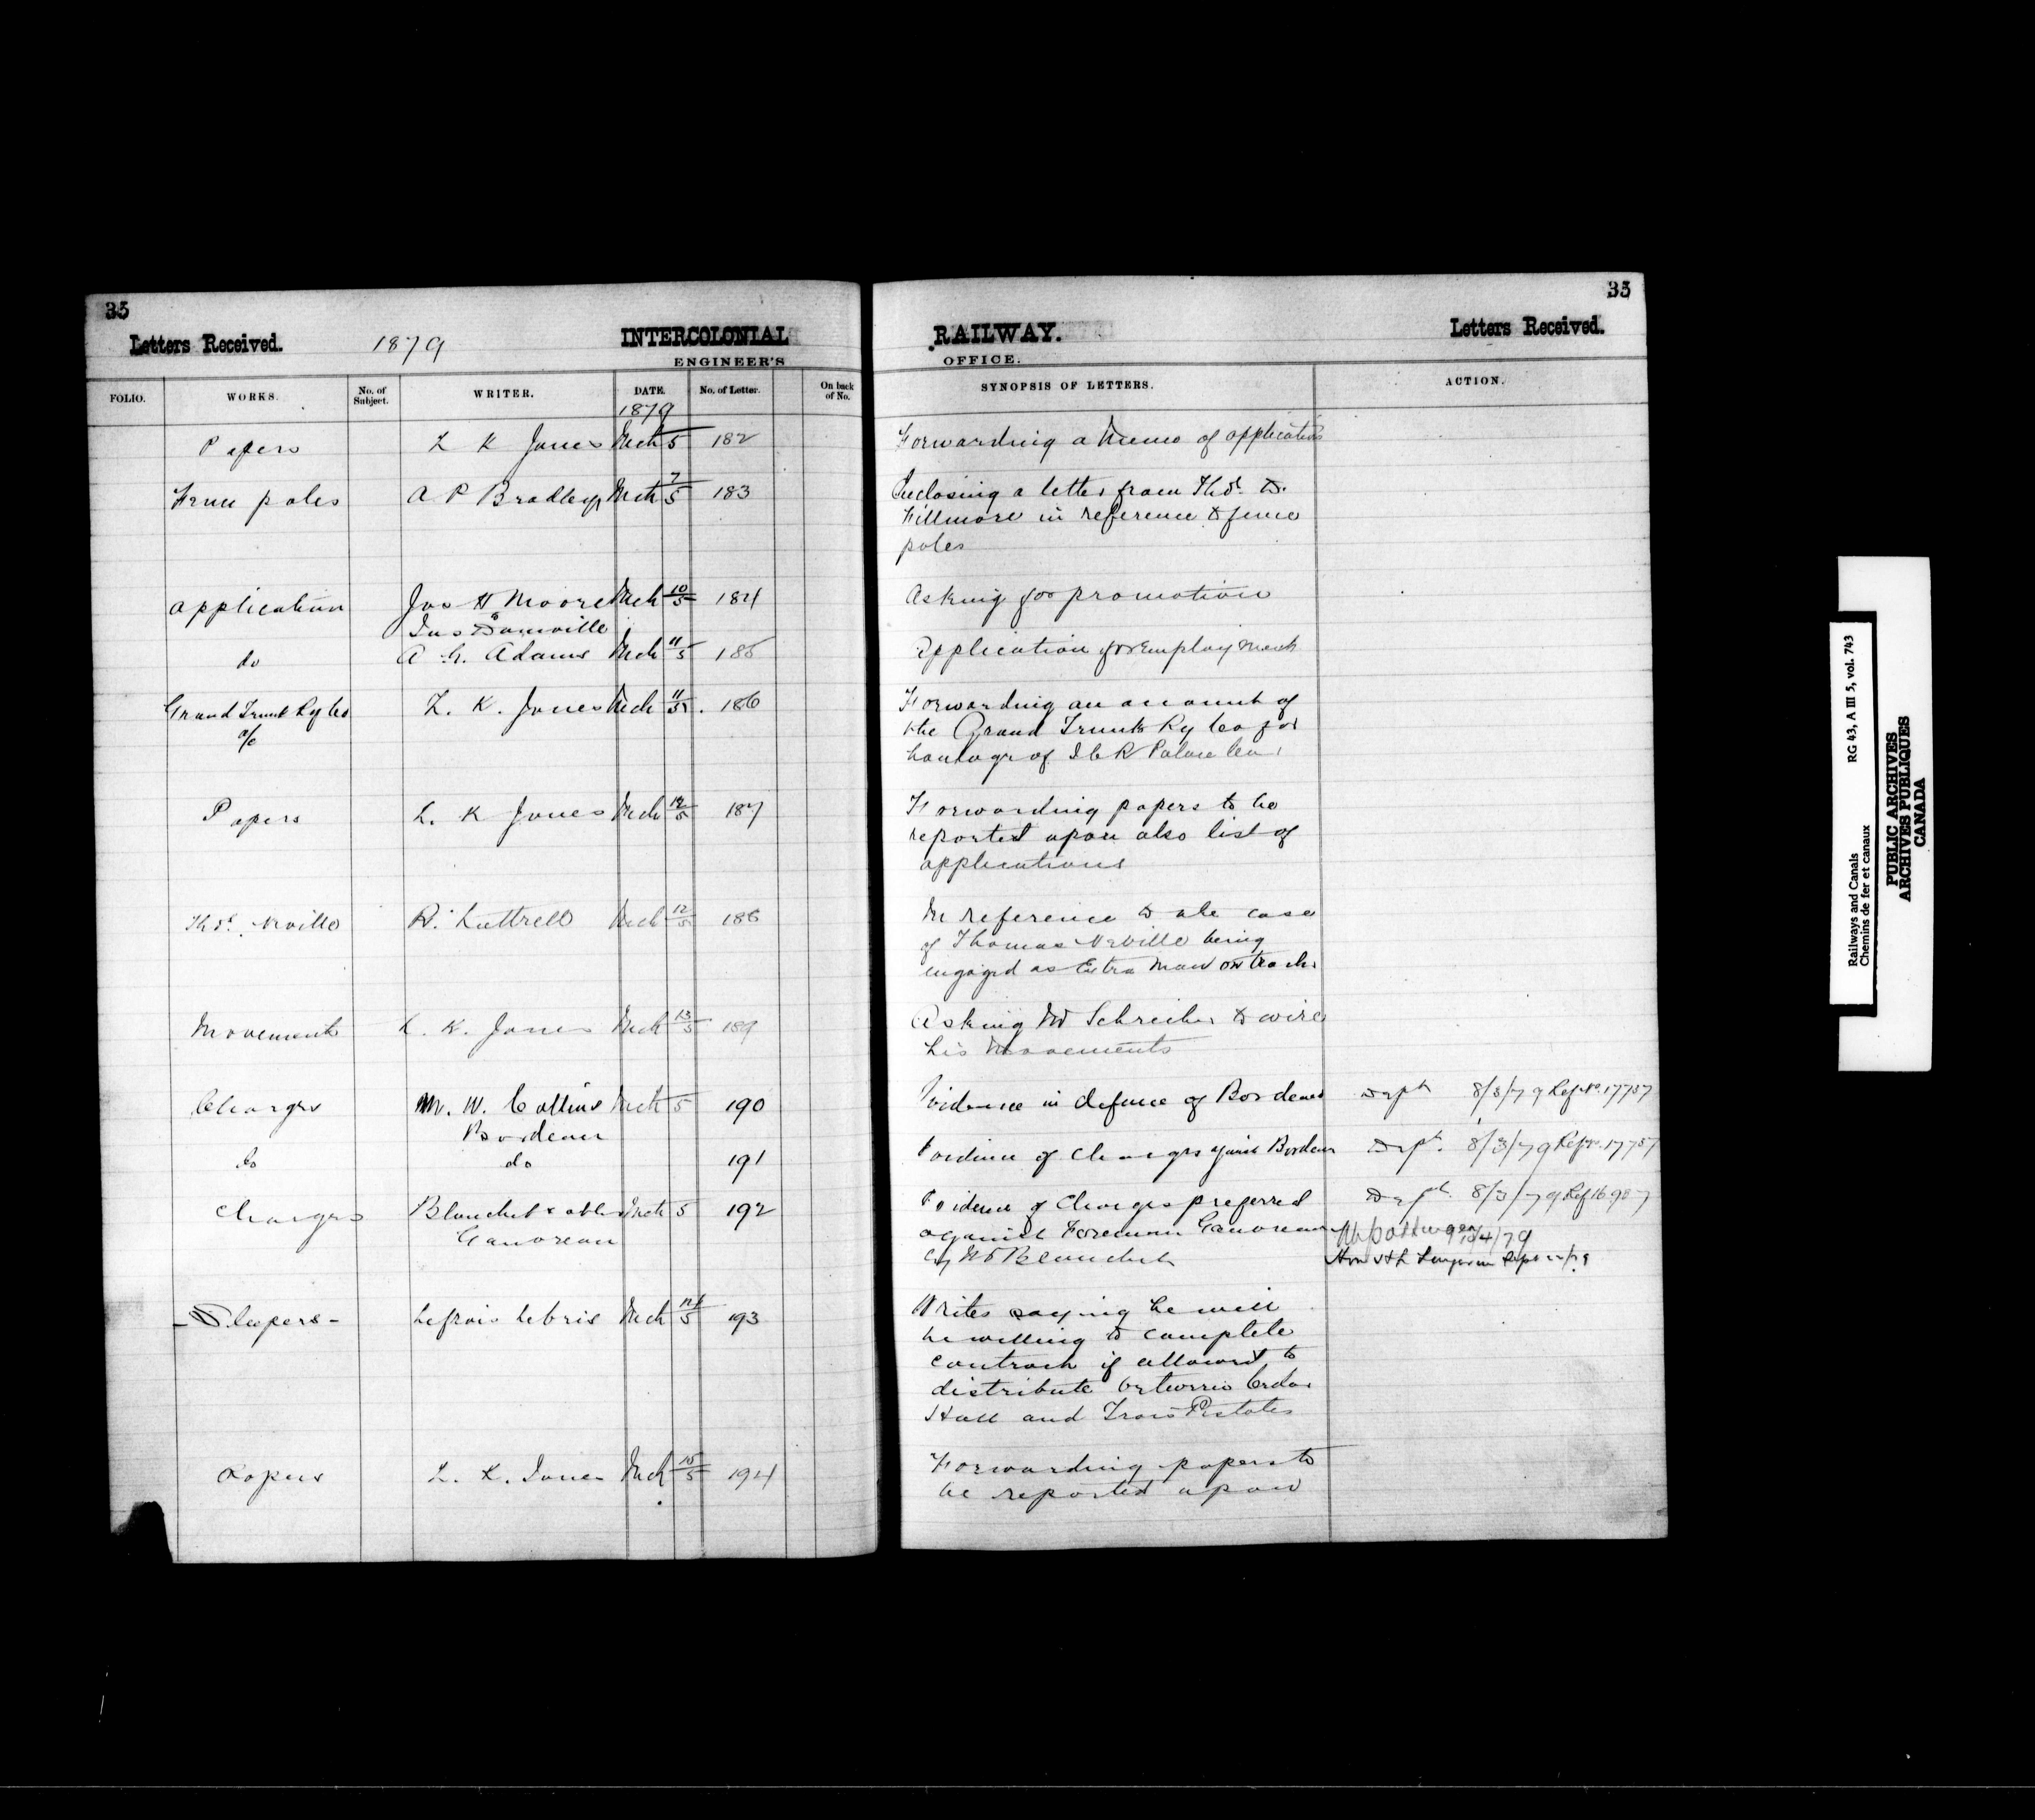 35
35
Letters Received. 1879 INTERCOLONIAL RAILWAY. Letters Received.
ENGINEER'S OFFICE.
FOLIO. WORKS. No. of Subject. WRITER. DATE. No. of Letter. On back of No. SYNOPSIS OF LETTERS. ACTION.
1879
Papers L K Jones Mch 5 182 Forwarding a Memo of application
poles A P Bradley Mch 7/5 183 Inclosing a letter from Thos. D.
Fillmore in reference to fence
poles
application Jas H Moore Mch 10/5 184 Asking for promotion
Jas Domville
do A G. Adams Mch 11/5 185 Application for Employment
Grand Trunk Ry Co L. K. Jones Mch 11/5 186 Forwarding an account of
a/c the Grand Trunk Ry Co for
haulage of I C R Palace Car
Papers L. K Jones Mch 12/5 187 Forwarding papers to be
reported upon also list of
applications
Thos. Neville D. Luttrell Mch 12/5 188 In reference to the case
of Thomas Neville being
engaged as Extra Man on track
Movements L. K. Jones Mch 13/5 189 Asking Mr Schreiber to wire
his Movements
Charges M. W. Collins Mch 5 190 Evidence in defence of Bordeau Dept 8/3/79 Ref No. 17737
Bordeau
do do 191 Evidence of Charges against Bordeau Dept. 8/3/79 Ref No. 17737
Charges Blanchet & others Mch 5 192 Evidence of Charges preferred Dept. 8/3/79 Ref 16907
Gauvreau against Foreman Gauvreau 10/4/79
by Mr Blanchet Hon H L Langevin
- Sleepers - Lefrois Lebris Mch 14/5 193 Writes saying he will
be willing to complete
contract if allowed to
distribute between Cedar
Hall and Trois Pistoles
Papers L. K. Jones Mch 15/5 194 Forwarding papers to
be reported upon
Railways and Canals RG 43, A III 5, vol. 743
Chemins de fer et canaux
PUBLIC ARCHIVES
ARCHIVES PUBLIQUES
CANADA